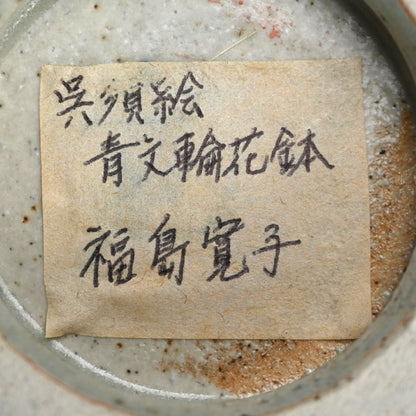 呉須絵
青文輪花鉢
福島寛子